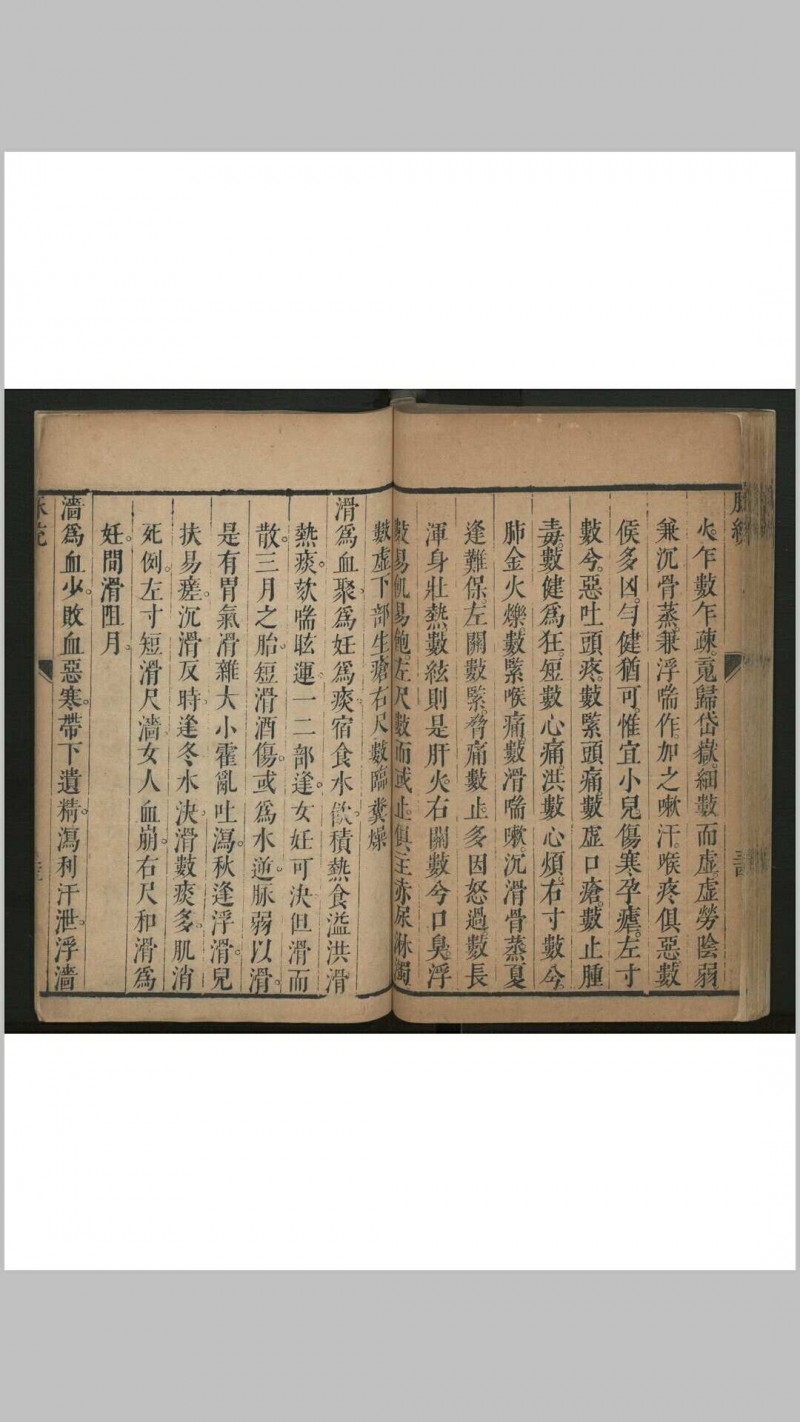 火。乍數乍疎。竟歸岱嶽。細數而虛。虛勞陰弱
兼沉骨蒸。兼浮喘作。加之嗽汗。喉疼俱惡。數
候多凶。勻健猶可。惟宜小兒傷寒孕瘧。左寸
數兮。惡吐頭疼。數緊頭痛。數虛口瘡。數止腫
毒。數健為狂。短數心痛。洪數心煩。右寸數兮。
肺金火爍。數緊喉痛。數滑喘嗽。沉滑骨蒸。夏
逢難保。左關數緊。脅痛數止多因怒過。數長
渾身壯熱。數絃則是肝火。右關數兮口臭。浮
數易飢易飽。左尺數而或止。俱主赤尿淋濁
數虛下部生瘡。右尺數臨糞燥
滑為血聚。為妊為痰。宿食水飲。積熱食溢。洪滑
熱痰。欬喘眩運。一二部逢。女妊可決。但滑而
散。三月之胎。短滑酒傷。或為水逆。脈弱以滑。
是有胃氣。滑雜大小。霍亂吐瀉。秋逢浮滑。兒
扶易瘥。沉滑反時。逢冬水決。滑數痰多。肌消
死例。左寸短滑尺濇。女人血崩。右尺和滑為
妊。間滑阻月。
濇為血少。敗血惡寒。帶下遺精。瀉利汗泄。浮濇